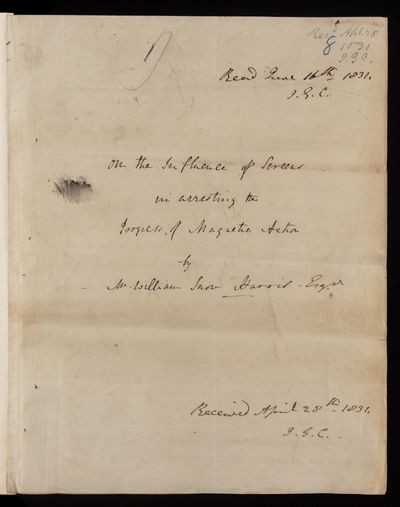 Recd Apl 28
8 1831
J.G.C.
Read June 16th 1831.
J.G.C.
On the Influence of Screens
in arresting the
Progress of Magnetic Action
by
Mr. William Snow Harris Esqr
Received April 28th 1831.
J.G.C.